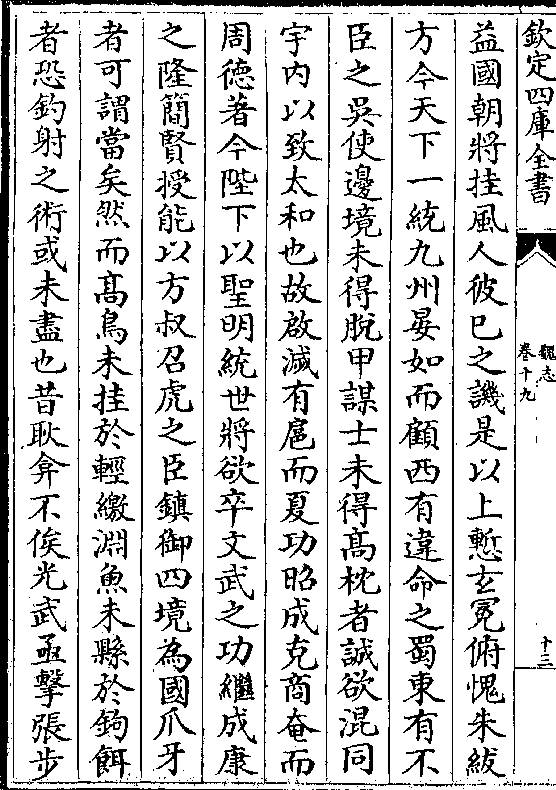 欽定四庫全書
魏志
卷十九
十三
益國朝將挂風人彼已之譏是以上慙玄冕俯愧朱紱
方今天下一統九州晏如而顧西有違命之蜀東有不
臣之吳使邊境未得脫甲謀士未得髙枕者誠欲混同
宇内以致太和也故啟滅有扈而夏功昭成克商奄而
周德著今陛下以聖明統世將欲卒文武之功繼成康
之隆簡賢授能以方叔召虎之臣鎮御四境為國爪牙
者可謂當矣然而髙鳥未挂於輕繳淵魚未縣於鉤餌
者恐釣射之術或未盡也昔耿弇不俟光武亟擊張步